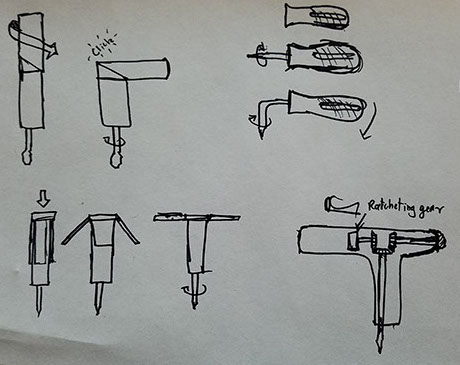 Click
Ratcheting gear